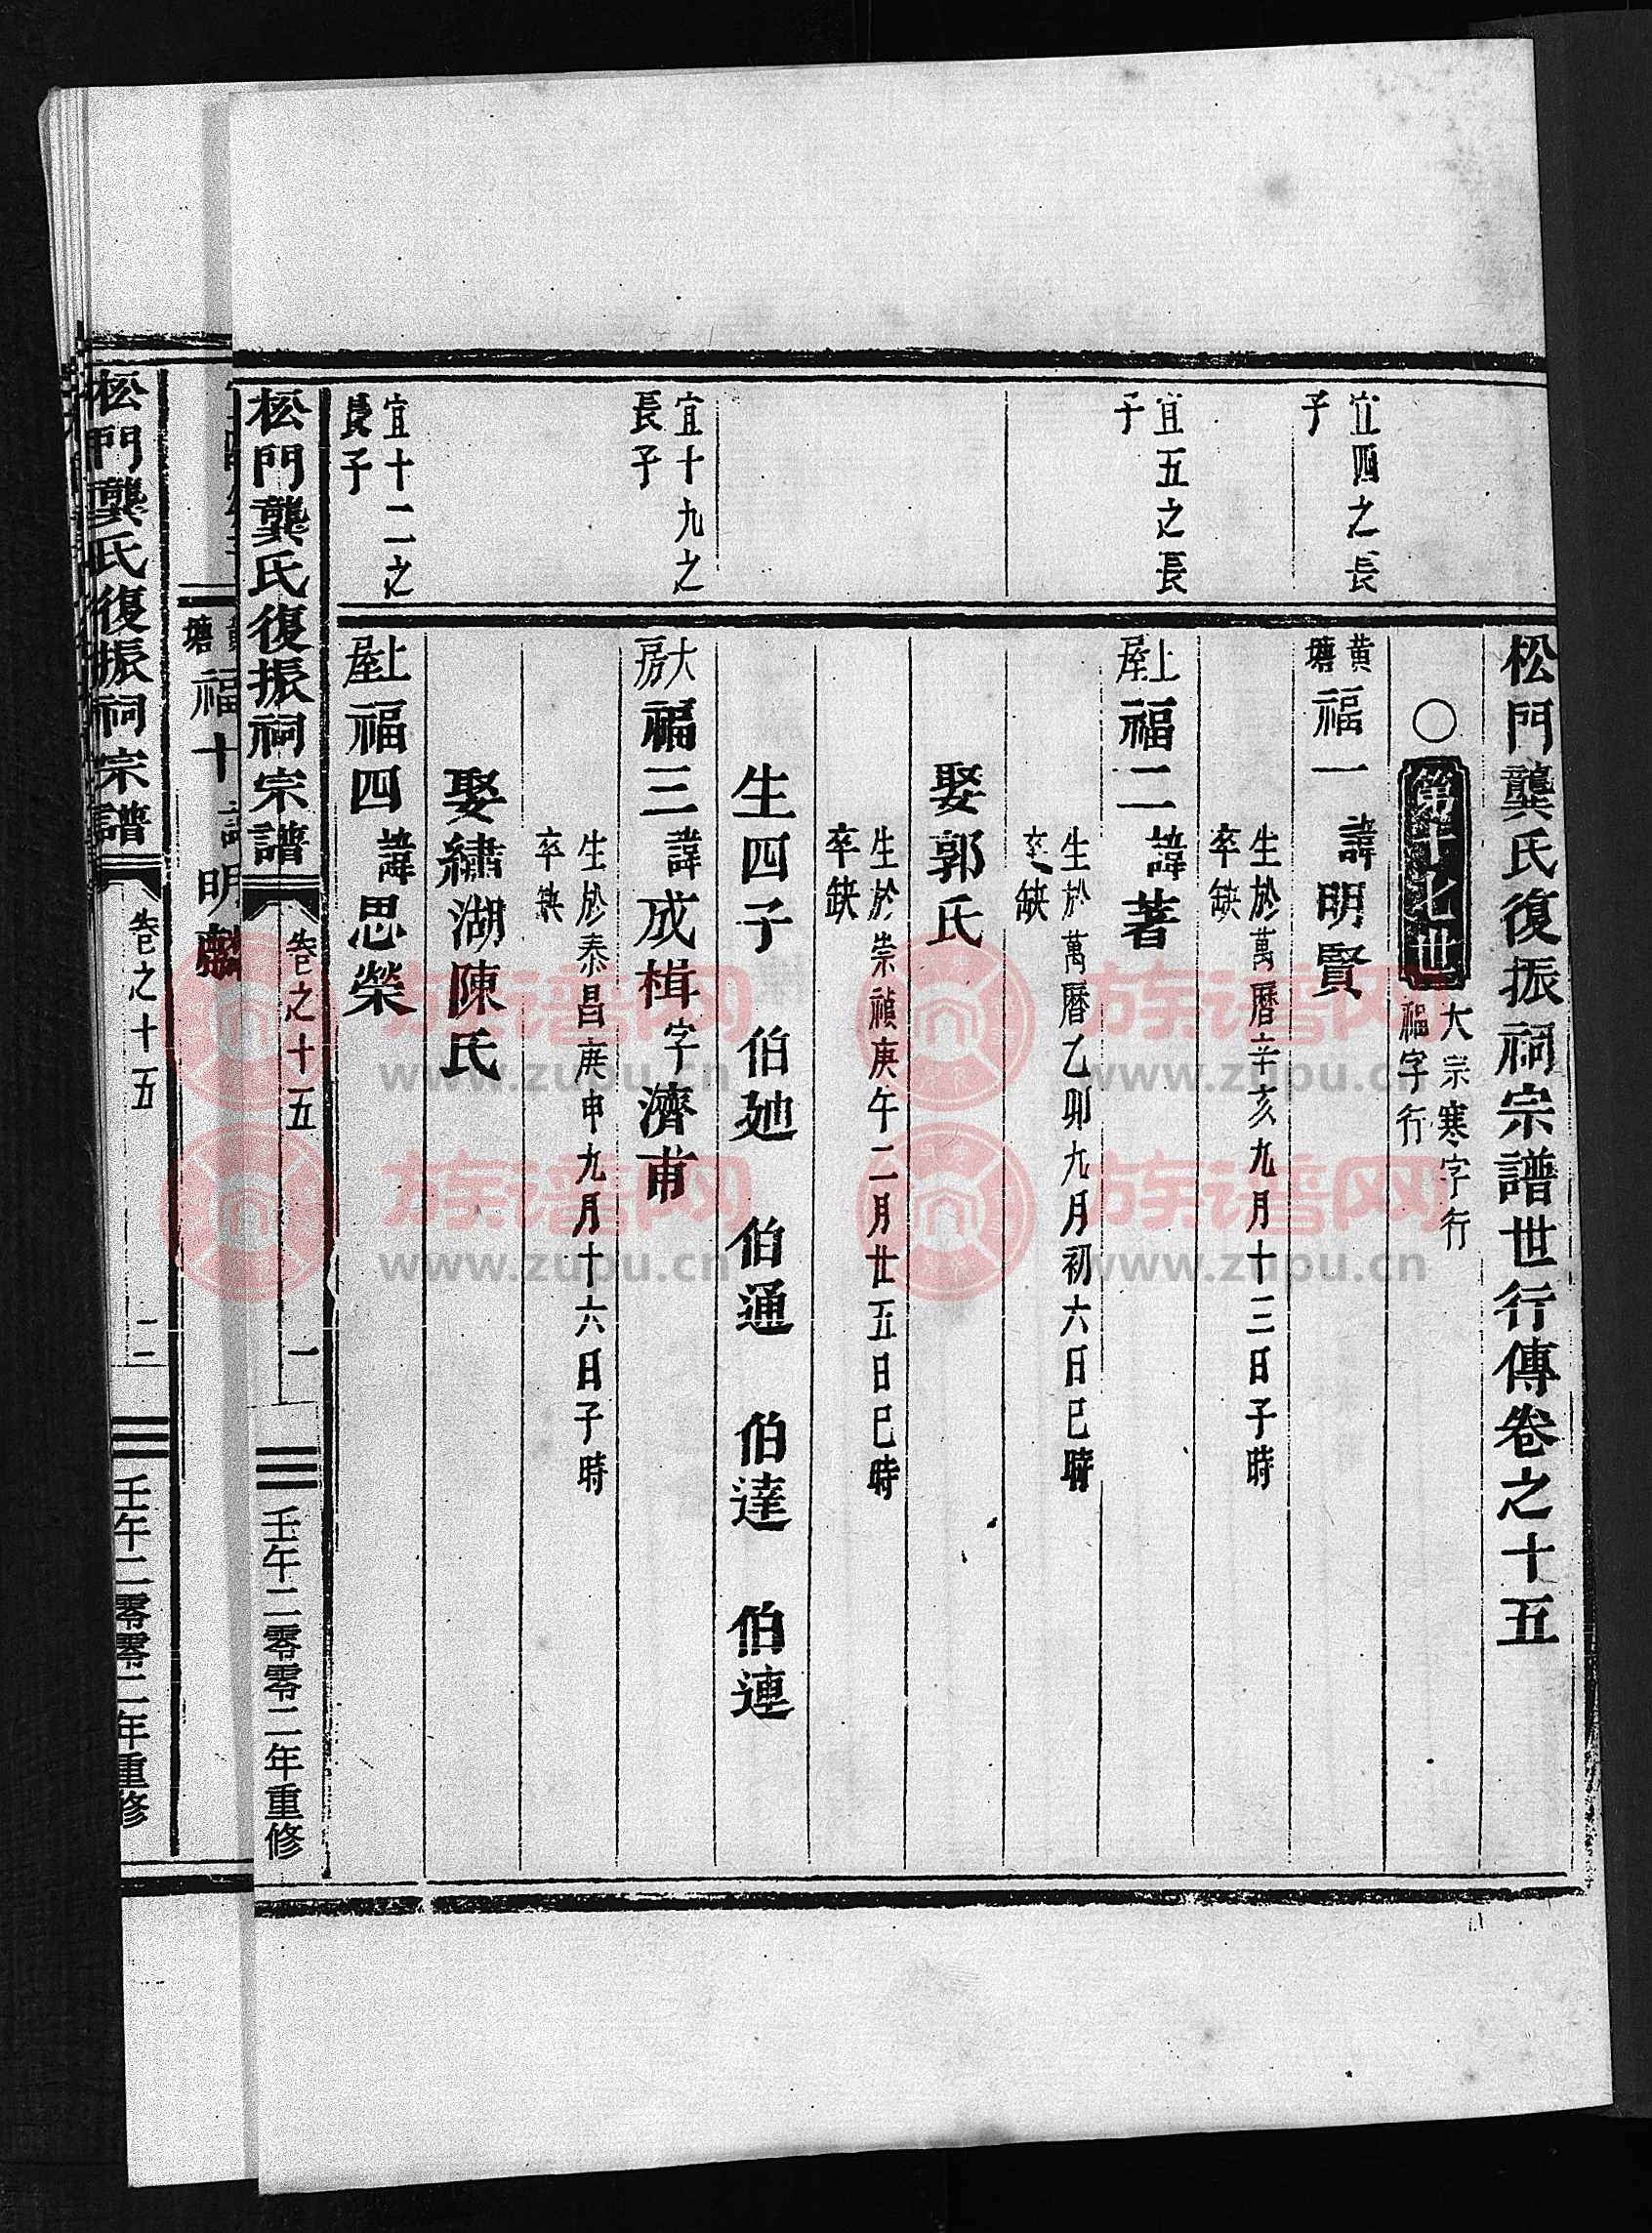 松門龔氏復振祠宗譜世行傳卷之十五
○第十七世 大宗寒字行
福字行
宜四之長
子
黃塘福一諱明賢
生於萬曆辛亥九月十三日子時
卒缺
宜五之長
子
上屋福二諱著
生於萬曆乙卯九月初六日巳時
卒缺
娶郭氏
生於崇禎庚午二月廿五日巳時
卒缺
生四子 伯䢋 伯通 伯達 伯連
宜十九之
長子
大房福三諱成楫字濟甫
生於泰昌庚申九月十六日子時
卒缺
娶繡湖陳氏
宜十二之
長子
上屋福四諱思榮
松門龔氏復振祠宗譜 卷之十五 一 壬午二零零二年重修
黃塘福十諱明
松門龔氏復振祠宗譜 卷之十五 二 壬午二零零二年重修
族谱网
www.zupu.cn
族谱网
www.zupu.cn
族谱网
www.zupu.cn
族谱网
www.zupu.cn